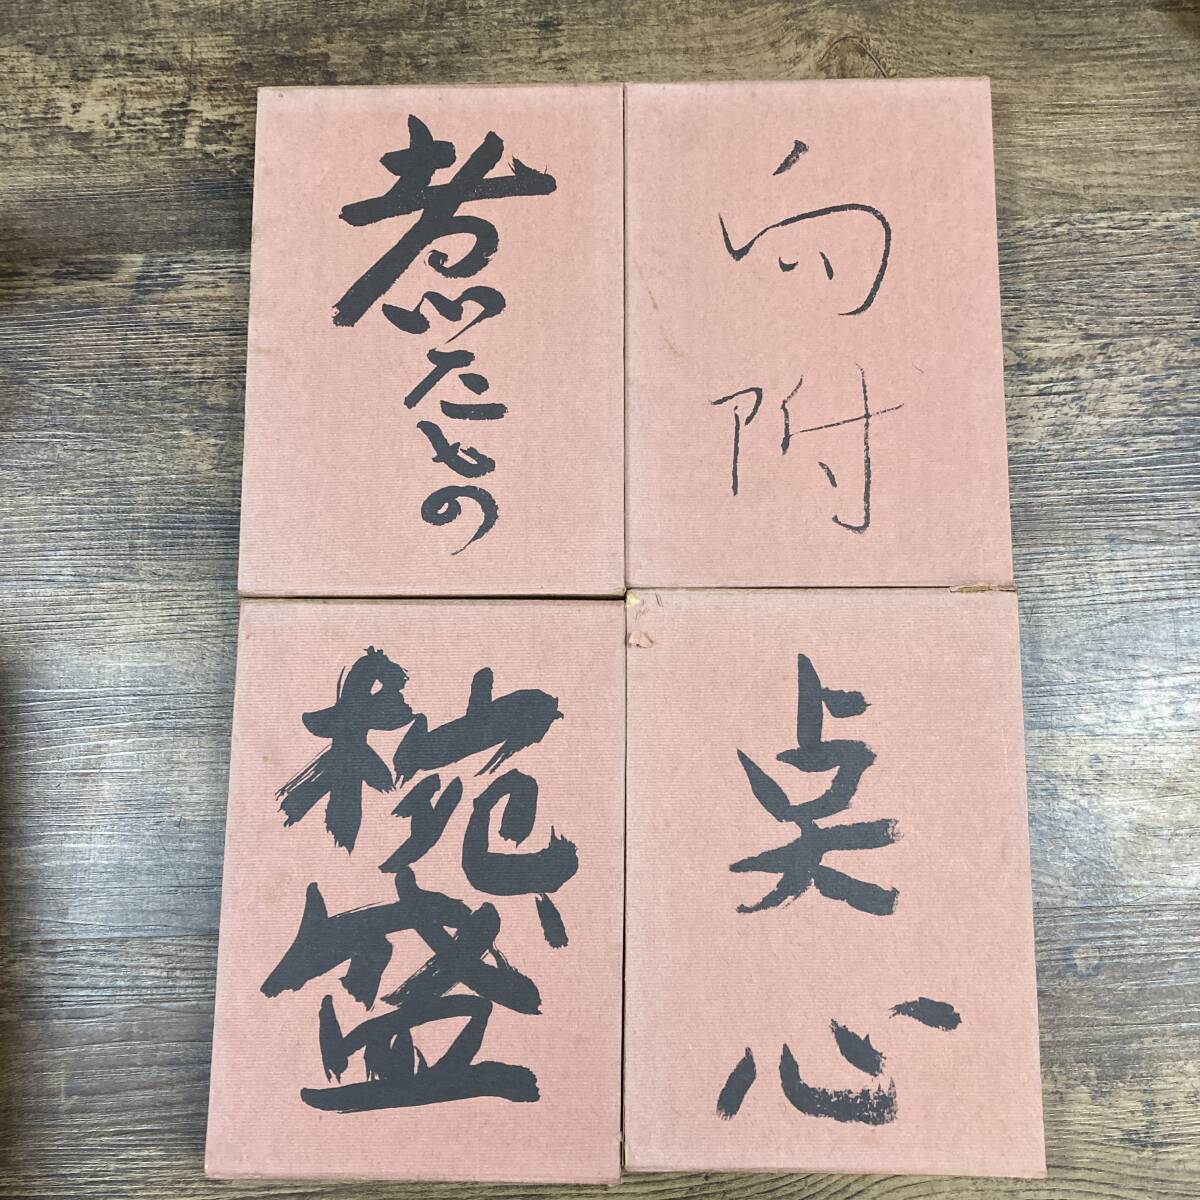 煮たもの
向附
椀盛
点心